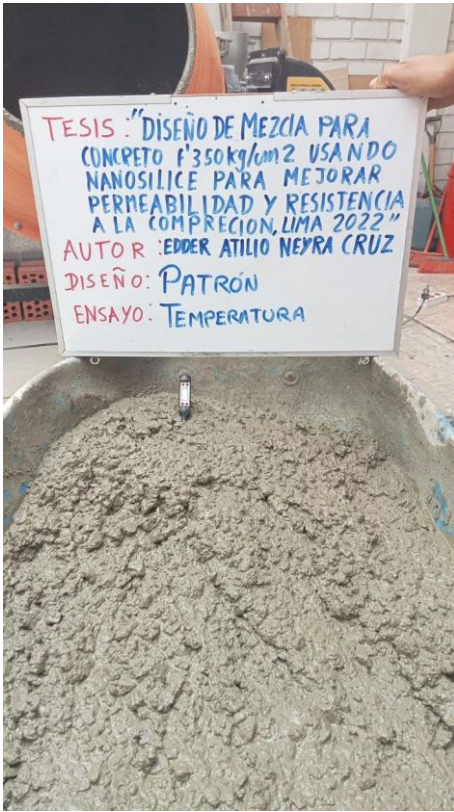 TESIS: "DISEÑO DE MEZCLA PARA
CONCRETO F'350kg/cm2 USANDO
NANOSILICE PARA MEJORAR
PERMEABILIDAD Y RESISTENCIA
A LA COMPRECION, LIMA 2022"
AUTOR: EDDER ATILIO NEYRA CRUZ
DISEÑO: PATRÓN
ENSAYO: TEMPERATURA